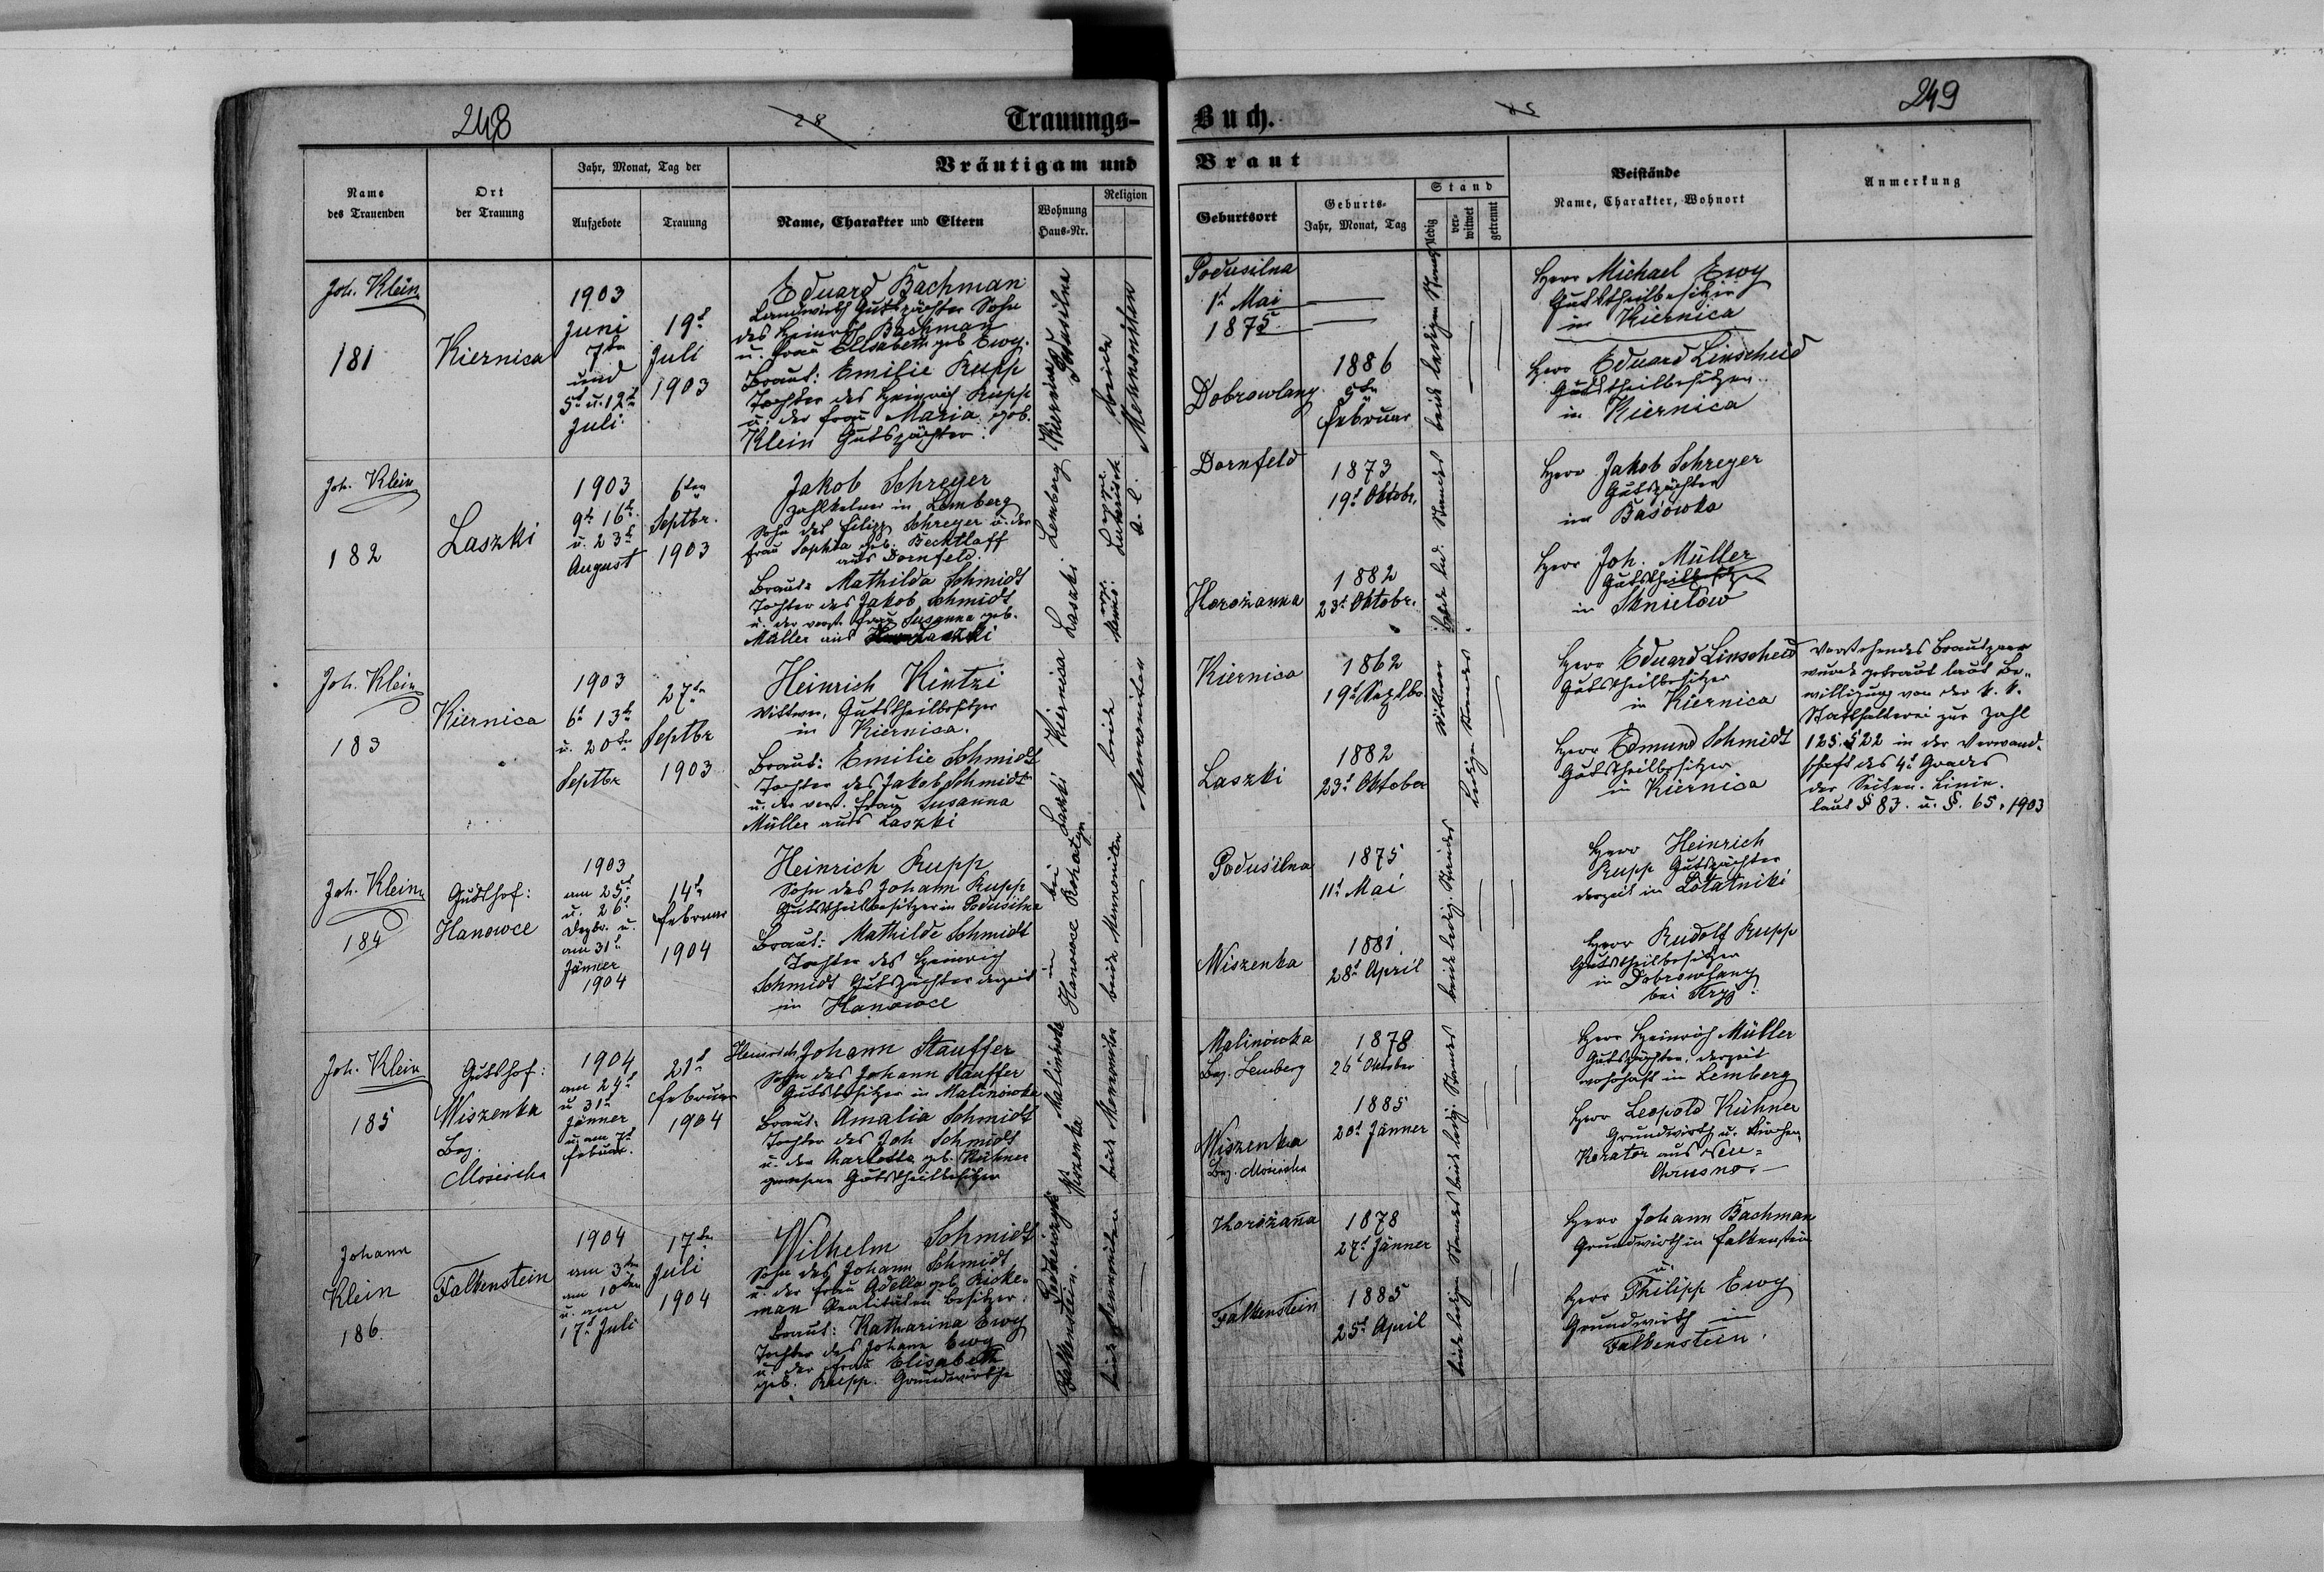 248
28
Trauungs-
Name
des Trauenden
Ort
der Trauung
Jahr, Monat, Tag der
Aufgebote
Trauung
Bräutigam und
Name, Charakter und Eltern
Wohnung
Haus-Nr.
Religion
Joh. Klein
181
Kiernica
1903
Juni
7ten
und
5t u. 12t
Juli
19t
Juli
1903
Eduard Bachman
Landwirth Gutspächter Sohn
des Heinrich Bachman
u. Frau Elisabeth geb Ewy.
Braut: Emilie Rupp
Tochter des Heinrich Rupp
u. der Frau Maria geb.
Klein Gutspächter.
Kiernica Podusilna
beide
Mennoniten
Joh. Klein
182
Laszki
1903
9t 16t
u. 23t
August
6ten
Septbr.
1903
Jakob Schreyer
Zahlkelner in Lemberg
Sohn des Filipp Schreyer u. der
Frau Sophia geb. Bechtloff
aus Dornfeld.
Braut: Mathilda Schmidt
Tochter des Jakob Schmidt
u. der verst. Frau Susanna geb.
Müller aus Laszki
Laszki Lemberg
Joh. Klein
183
Kiernica
1903
6t 13t
u. 20ten
Septbr
27ten
Septbr
1903
Heinrich Kintzi
Wittwer, Gutstheilbesitzer
in Kiernica.
Braut: Emilie Schmidt
Tochter des Jakob Schmidt
u. der verst. Frau Susanna
Müller aus Laszki
Laszki Kiernica
beide
Mennoniten
Joh. Klein
184
Gutshof:
Hanowce
1903
am 25t
u. 26t
Dezbr. u.
am 31t
Jänner
1904
14t
Februar
1904
Heinrich Rupp
Sohn des Johann Rupp
Gutstheilbesitzer in Podusilna
Braut: Mathilde Schmidt
Tochter des Heinrich
Schmidt Gutspächter derzeit
in Hanowce
in bei
Hanowce Rohatyn
beide Mennoniten
Joh. Klein
185
Gutshof:
Wiszenka
Bez.
Mościska
1904
am 24t
u 31t
Jänner
u. am 7t
Februar.
21t
Februar
1904
Heinrich Johann Stauffer
Sohn des Johann Stauffer
Gutsbesitzer in Malinówka
Braut: Amalia Schmidt
Tochter des Joh Schmidt
u. der Charlotte geb. Kühner
gewesene Gutstheilbesitzer
Wiszenka Malinówka
beide Mennoniten
Johann
Klein
186
Falkenstein
1904
am 3ten
am 10ten
u. am
17t Juli
17ten
Juli
1904
Wilhelm Schmidt
Sohn des Johann Schmidt
u. der Frau Adella geb. Ricke-
man Realitäten besitzer.
Braut: Katharina Ewy
Tochter des Johann Ewy
u. der Frau Elisabeth
geb. Rupp. Grundwirthe
Falkenstein.
beide Mennoniten
Buch.
249
Braut
Geburtsort
Geburts-
Jahr, Monat, Tag
Stand
ledig
ver-
witwet
getrennt
Beistände
Name, Charakter, Wohnort
Anmerkung
Podusilna
1t Mai
1875
Dobrowlany
1886
5ten
Februar
beide ledigen Standes
Herr Michael Ewy
Gutstheilbesitzer
in Kiernica
Herr Eduard Linscheid
Gutstheilbesitzer
in Kiernica
Dornfeld
1873
19t Oktobr.
Horożanna
1882
23t Oktobr.
beide led. Standes
Herr Jakob Schreyer
Gutspächter
in Basówka
Herr Joh. Müller
Gutstheilbesitzer
in
Kiernica
1862
19t Septbr
Laszki
1882
23t Oktober
Wittwer
ledigen Standes
Herr Eduard Linscheid
Gutstheilbesitzer
in Kiernica
Herr Edmund Schmidt
Gutstheilbesitzer
in Kiernica
Vorstehendes Brautpaar
wurde getraut laut Be-
willigung von der k. k.
Statthalterei zur Zahl
125.522 in der Verwand-
schaft des 4t Grades
der Seiten-Linie.
laut § 83. u. §. 65. 1903
Podusilna
1875
11t Mai
Wiszenka
1881
28t April
beide ledig. Standes
Herr Heinrich
Rupp Gutspächter
derzeit in Lotatniki
Herr Rudolf Rupp
Gutstheilbesitzer
in Dobrowlany
bei Stryj.
Malinówka
Bez. Lemberg
1878
26t Oktober
Wiszenka
Bez. Mościska
1885
20t Jänner
beide ledig. Standes
Herr Heinrich Müller
Gutspächter, derzeit
wohnhaft in Lemberg
Herr Leopold Kühner
Grundwirth u. Kirchen
Kurator aus Neu-
Chrusno.
Horożana
1878
27t Jänner
Falkenstein
1885
25t April
beide ledigen Standes
Herr Johann Bachman
Grundwirth in Falkenstein
u.
Herr Philipp Ewy
Grundwirth in
Falkenstein.